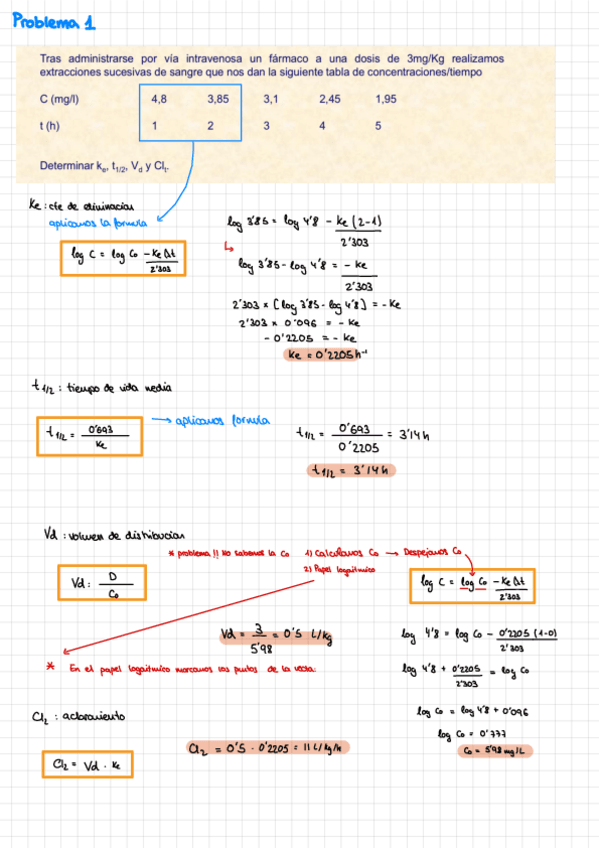 Problema 1
Tras administrarse por vía intravenosa un fármaco a una dosis de 3mg/Kg realizamos
extracciones sucesivas de sangre que nos dan la siguiente tabla de concentraciones/tiempo
C (mg/l) 4,8 3,85 3,1 2,45 1,95
t (h) 1 2 3 4 5
Determinar ke, t1/2, Vd y Clt.
Ke: cte de eliminacion
aplicamos la formula
log C = log Co - Ke Δt / 2'303
log 3'85 = log 4'8 - Ke (2-1) / 2'303
log 3'85 - log 4'8 = - Ke / 2'303
2'303 × [log 3'85 - log 4'8] = - Ke
2'303 × 0'096 = - Ke
- 0'2205 = - Ke
Ke = 0'2205 h⁻¹
t1/2 : tiempo de vida media
t1/2 = 0'693 / Ke
→ aplicamos formula
t1/2 = 0'693 / 0'2205 = 3'14 h
t1/2 = 3'14 h
Vd : volumen de distribucion
* problema !! No sabemos la Co 1) Calculamos Co → Despejamos Co
2) Papel logaritmico
Vd : D / Co
log C = log Co - Ke Δt / 2'303
Vd = 3 / 5'98 = 0'5 L/kg
log 4'8 = log Co - 0'2205 (1-0) / 2'303
* En el papel logaritmico marcamos los puntos de la recta.
log 4'8 + 0'2205 / 2'303 = log Co
log Co = log 4'8 + 0'096
log Co = 0'777
Co = 5'98 mg/L
Cl2 : aclaramiento
Cl2 = 0'5 · 0'2205 = 11 L/kg/h
Cl2 = Vd · Ke